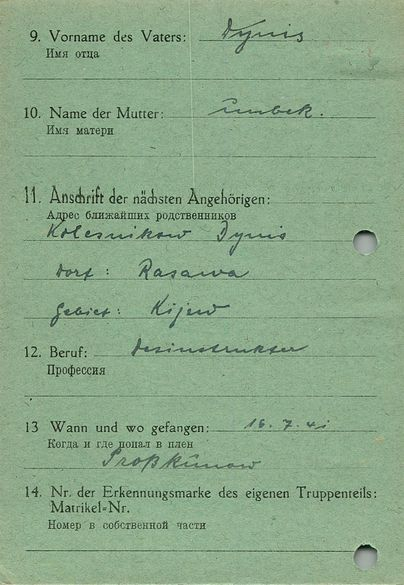 9. Vorname des Vaters: Dynis
Имя отца
10. Name der Mutter: unbek.
Имя матери
11. Anschrift der nächsten Angehörigen:
Адрес ближайших родственников
Kolesnikow Dynis
Dorf: Rasawa
Gebiet: Kijew
12. Beruf: Desinstruktor
Профессия
13 Wann und wo gefangen: 16.7.41
Когда и где попал в плен
Proßkurow
14. Nr. der Erkennungsmarke des eigenen Truppenteils:
Matrikel-Nr.
Номер в собственной части